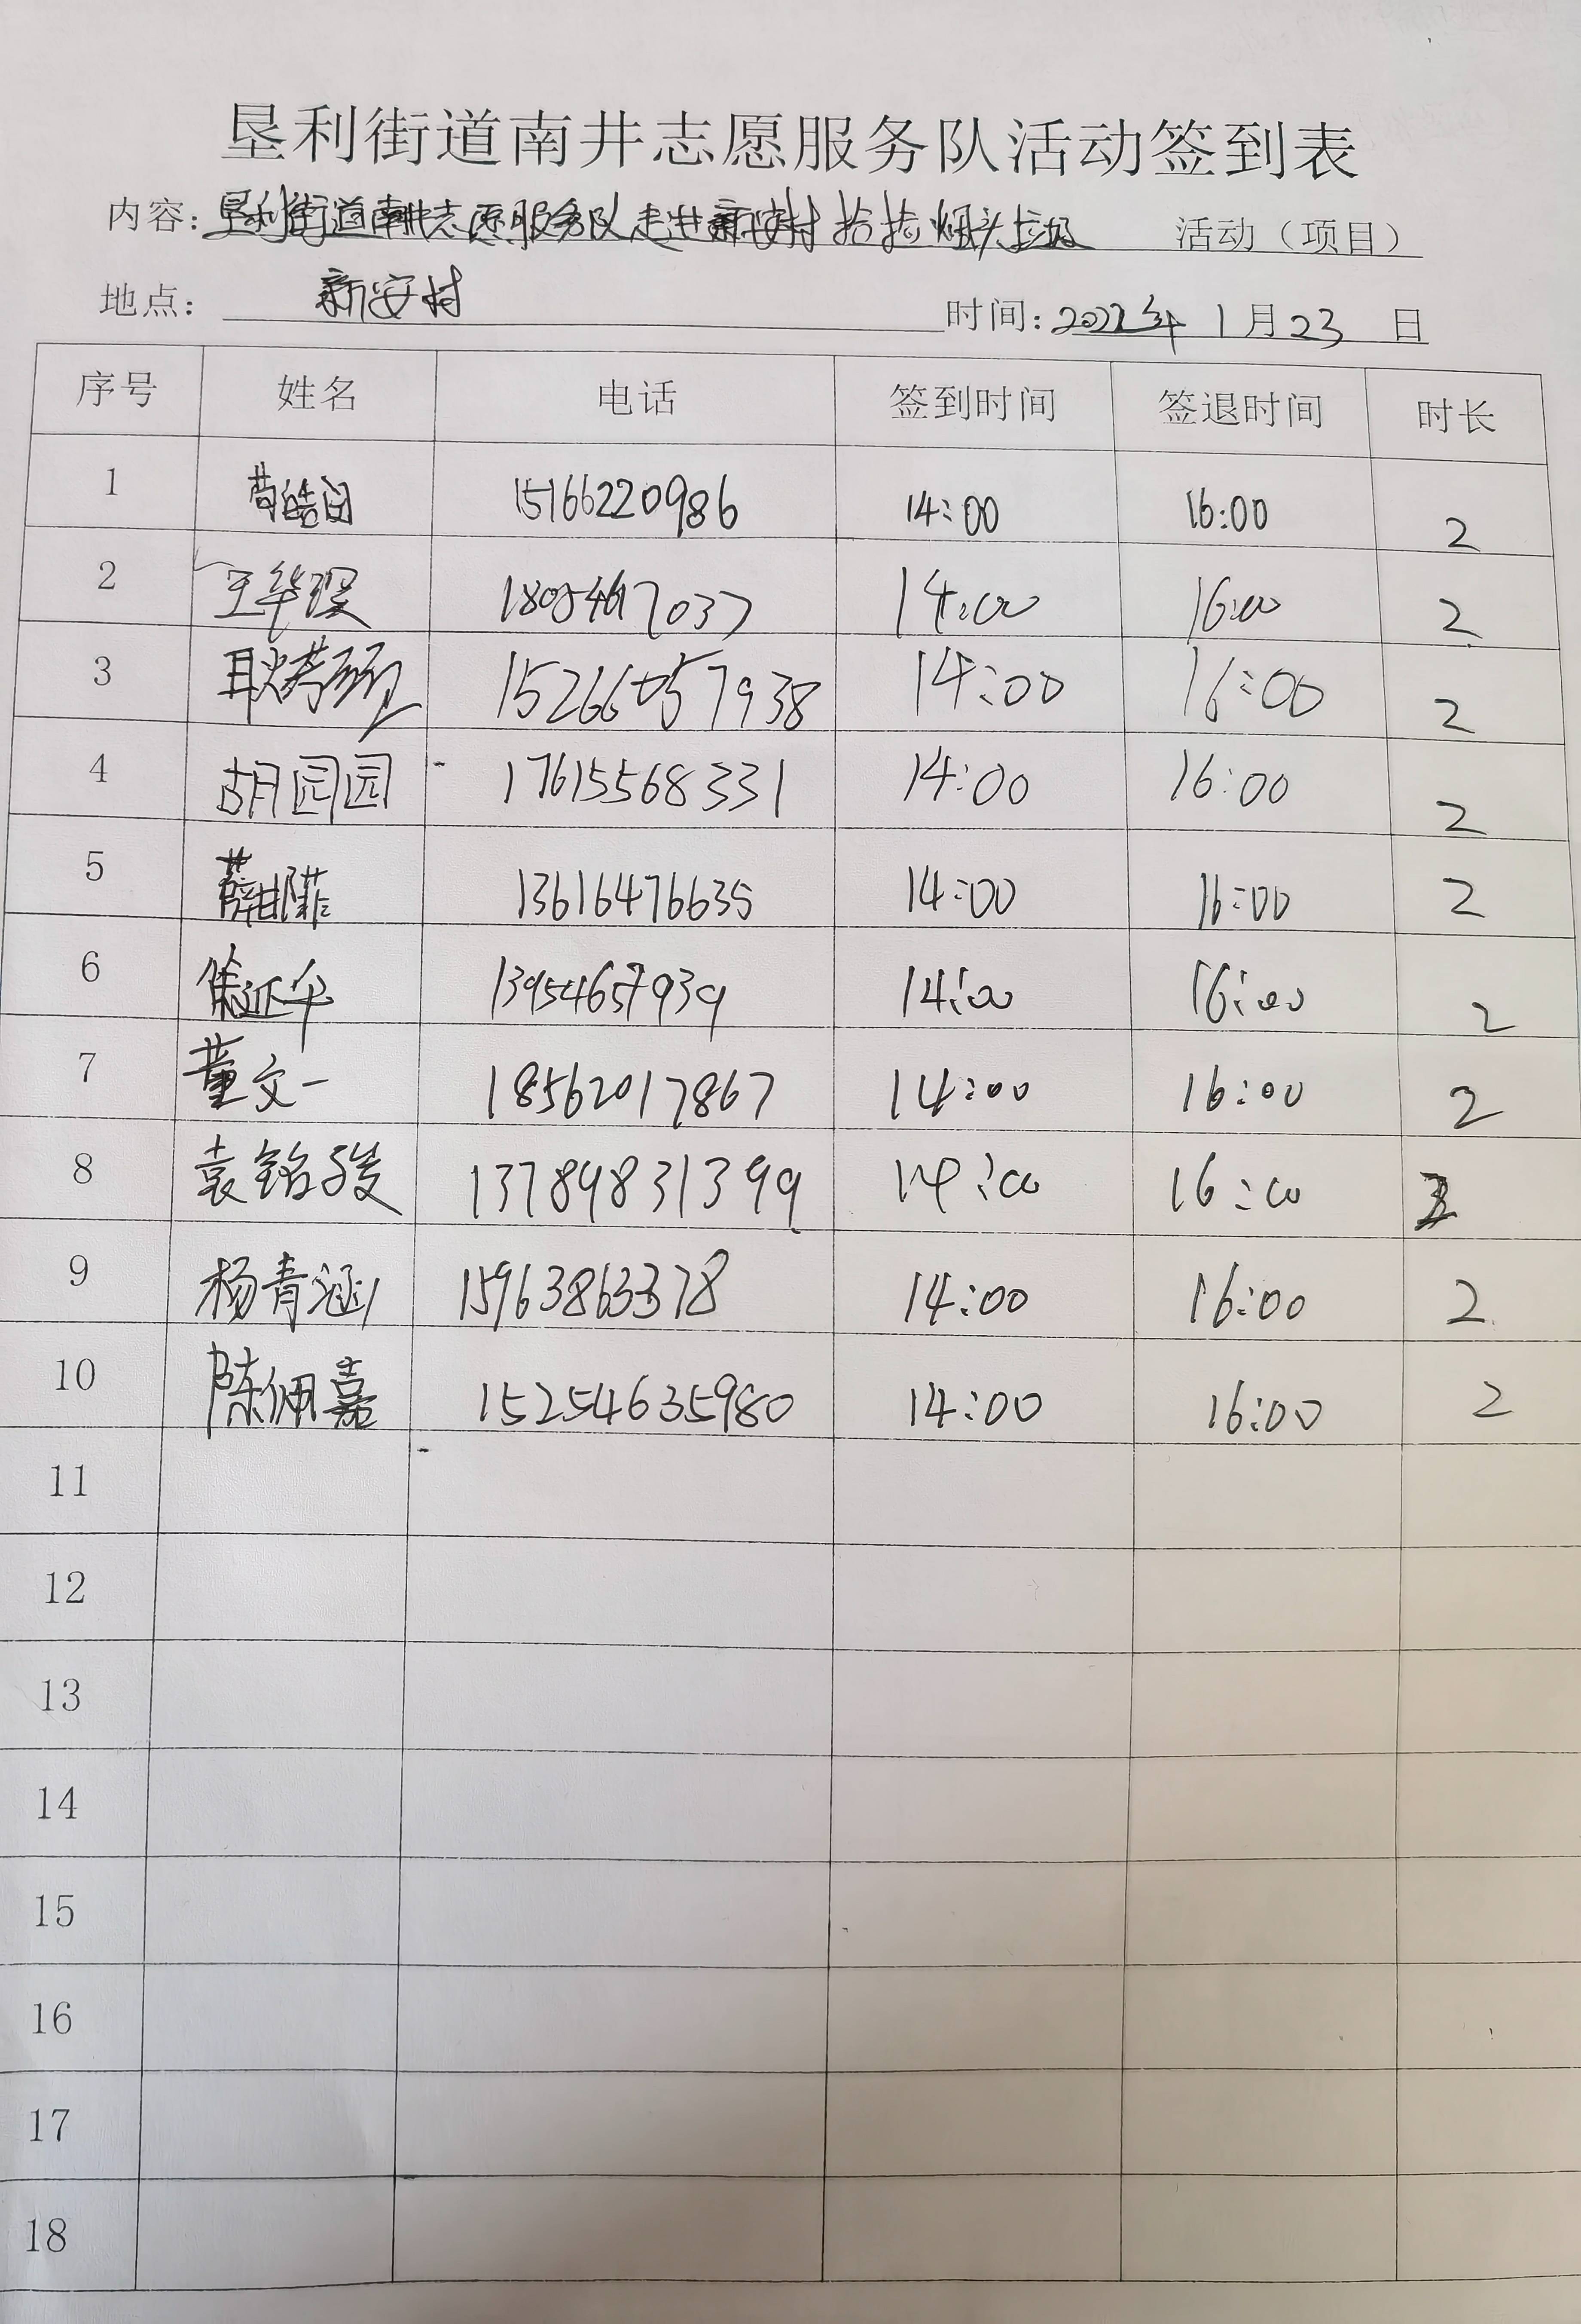 垦利街道南井志愿服务队活动签到表
内容：垦利街道南井志愿服务队走进新安村捡拾烟头垃圾 活动（项目）
地点： 新安村 时间：2022年 1月23 日
序号 姓名 电话 签到时间 签退时间 时长
1 15166220986 14:00 16:00 2
2 王华 14:00 16:00 2
3 耿 15266057938 14:00 16:00 2
4 胡园园 17615568331 14:00 16:00 2
5 薛 13616476635 14:00 16:00 2
6 13954657939 14:00 16:00 2
7 董文一 18562017867 14:00 16:00 2
8 袁铭骏 13789831399 14:00 16:00 2
9 杨青涵 15963863378 14:00 16:00 2
10 陈佩嘉 15254635980 14:00 16:00 2
11
12
13
14
15
16
17
18